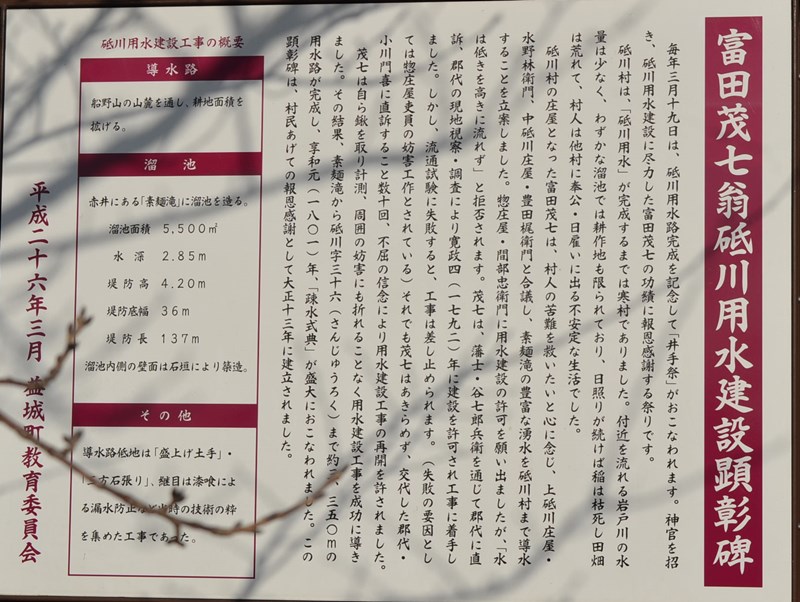 富田茂七翁砥川用水建設顕彰碑
毎年三月十九日は、砥川用水路完成を記念して「井手祭」がおこなわれます。神官を招
き、砥川用水建設に尽力した富田茂七の功績に報恩感謝する祭りです。
砥川村は、「砥川用水」が完成するまでは寒村でありました。付近を流れる岩戸川の水
量は少なく、わずかな溜池では耕作地も限られており、日照りが続けば稲は枯死し田畑
は荒れて、村人は他村に奉公・日雇いに出る不安定な生活でした。
砥川村の庄屋となった富田茂七は、村人の苦難を救いたいと心に念じ、上砥川庄屋・
水野林衛門、中砥川庄屋・豊田梶衛門と合議し、素麺滝の豊富な湧水を砥川村まで導水
することを立案しました。惣庄屋・間部忠衛門に用水建設の許可を願い出ましたが、「水
は低きを高きに流れず」と拒否されます。茂七は、藩士・谷七郎兵衛を通じて郡代に直
訴、郡代の現地視察・調査により寛政四（一七九二）年に建設を許可され工事に着手し
ました。しかし、流通試験に失敗すると、工事は差し止められます。（失敗の要因とし
ては惣庄屋吏員の妨害工作とされている）それでも茂七はあきらめず、交代した郡代・
小川門喜に直訴すること数十回、不屈の信念により用水建設工事の再開を許されました。
茂七は自ら鍬を取り計測、周囲の妨害にも折れることなく用水建設工事を成功に導き
ました。その結果、素麺滝から砥川字三十六（さんじゅうろく）まで約三、三五〇ｍの
用水路が完成し、享和元（一八〇一）年、「疎水式典」が盛大におこなわれました。この
顕彰碑は、村民あげての報恩感謝として大正十三年に建立されました。
砥川用水建設工事の概要
導水路
船野山の山麓を通し、耕地面積を
拡げる。
溜 池
赤井にある「素麺滝」に溜池を造る。
溜池面積 5,500㎡
水 深 2.85m
堤防高 4.20m
堤防底幅 36m
堤防長 137m
溜池内側の壁面は石垣により築造。
その他
導水路低地は「盛上げ土手」・
「三方石張り」、継目は漆喰によ
る漏水防止など当時の技術の粋
を集めた工事であった。
平成二十六年三月 益城町教育委員会